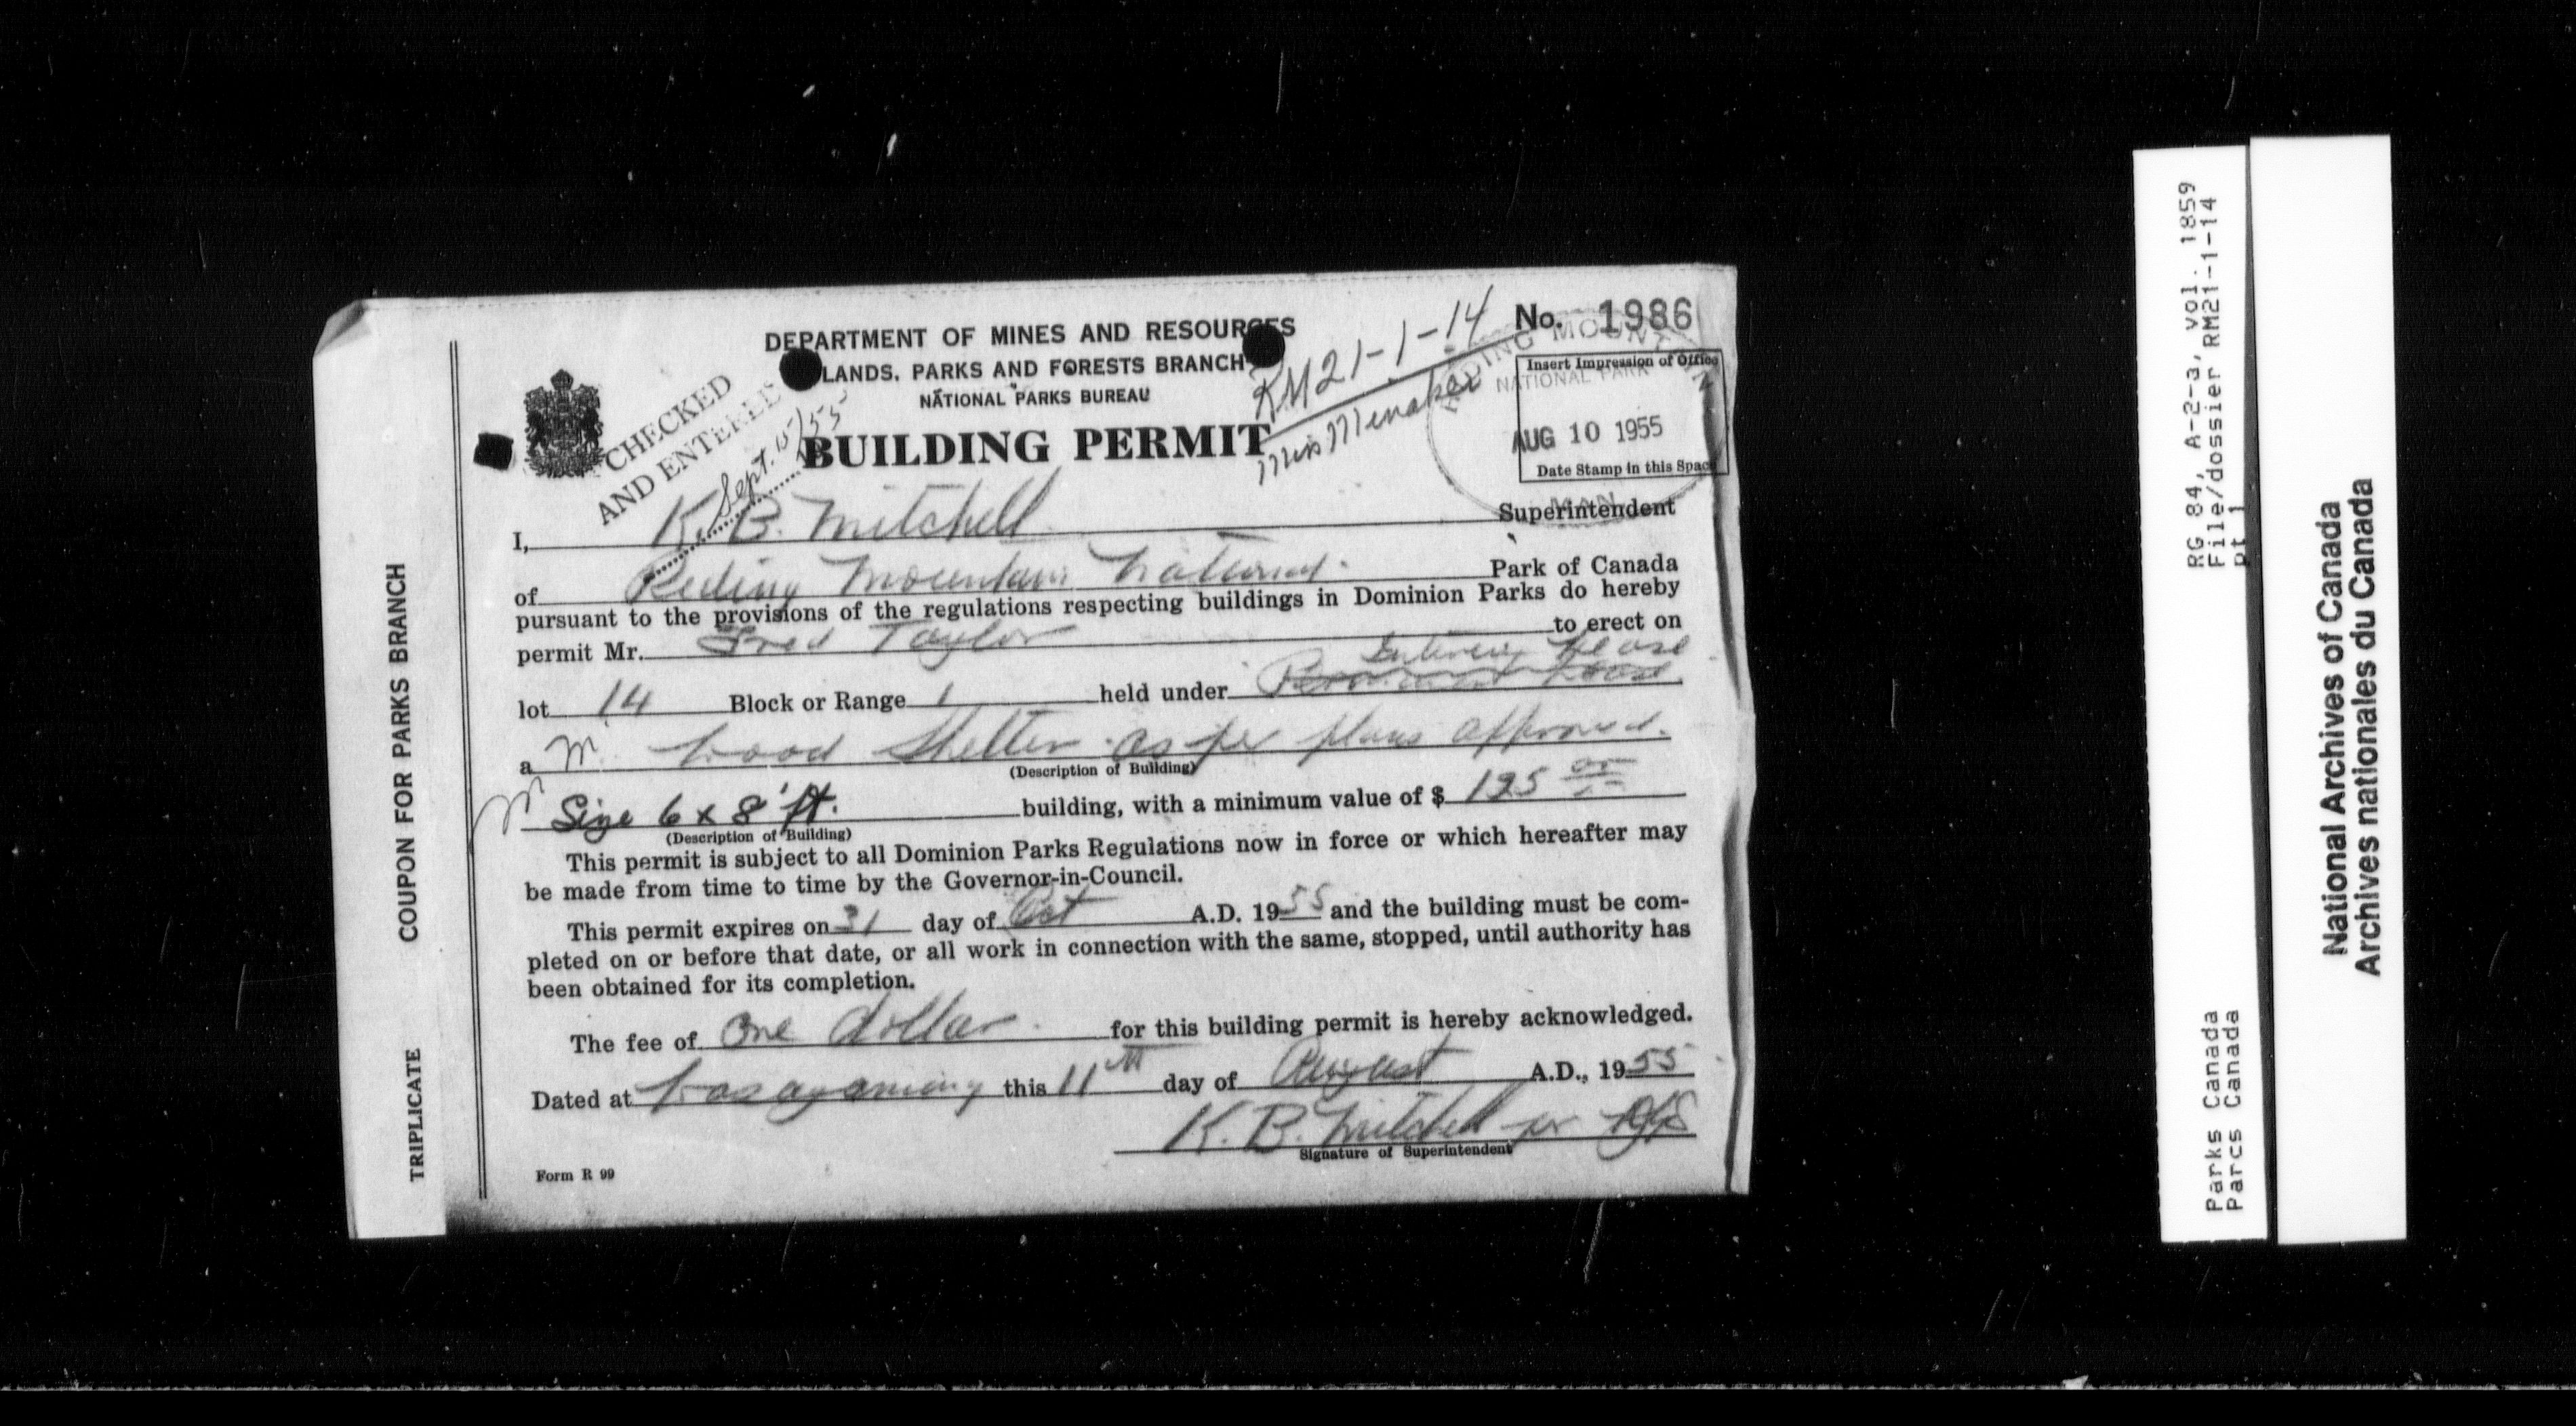 DEPARTMENT OF MINES AND RESOURCES
LANDS, PARKS AND FORESTS BRANCH
NATIONAL PARKS BUREAU
BUILDING PERMIT
CHECKED
AND ENTERED
Sept. 15/55
RM21-1-14
Miss Menaker
No. 1986
RIDING MOUNT
NATIONAL PARK
MAN.
Insert Impression of Office
AUG 10 1955
Date Stamp in this Space
I, K. B. Mitchell Superintendent
of Riding Mountain National Park of Canada
pursuant to the provisions of the regulations respecting buildings in Dominion Parks do hereby
permit Mr. Fred Taylor to erect on
lot 14 Block or Range 1 held under Lease
a Wood Shelter as per plans approved.
(Description of Building)
Size 6 x 8' ft. building, with a minimum value of $ 125 00
(Description of Building)
This permit is subject to all Dominion Parks Regulations now in force or which hereafter may
be made from time to time by the Governor-in-Council.
This permit expires on 31 day of Oct A.D. 1955 and the building must be com-
pleted on or before that date, or all work in connection with the same, stopped, until authority has
been obtained for its completion.
The fee of One dollar for this building permit is hereby acknowledged.
Dated at Wasagaming this 11th day of August A.D., 1955
K. B. Mitchell per
Signature of Superintendent
Form R 99
COUPON FOR PARKS BRANCH
TRIPLICATE
RG 84, A-2-a, vol. 1859
File/dossier RM21-1-14
pt 1
Parks Canada
Parcs Canada
National Archives of Canada
Archives nationales du Canada